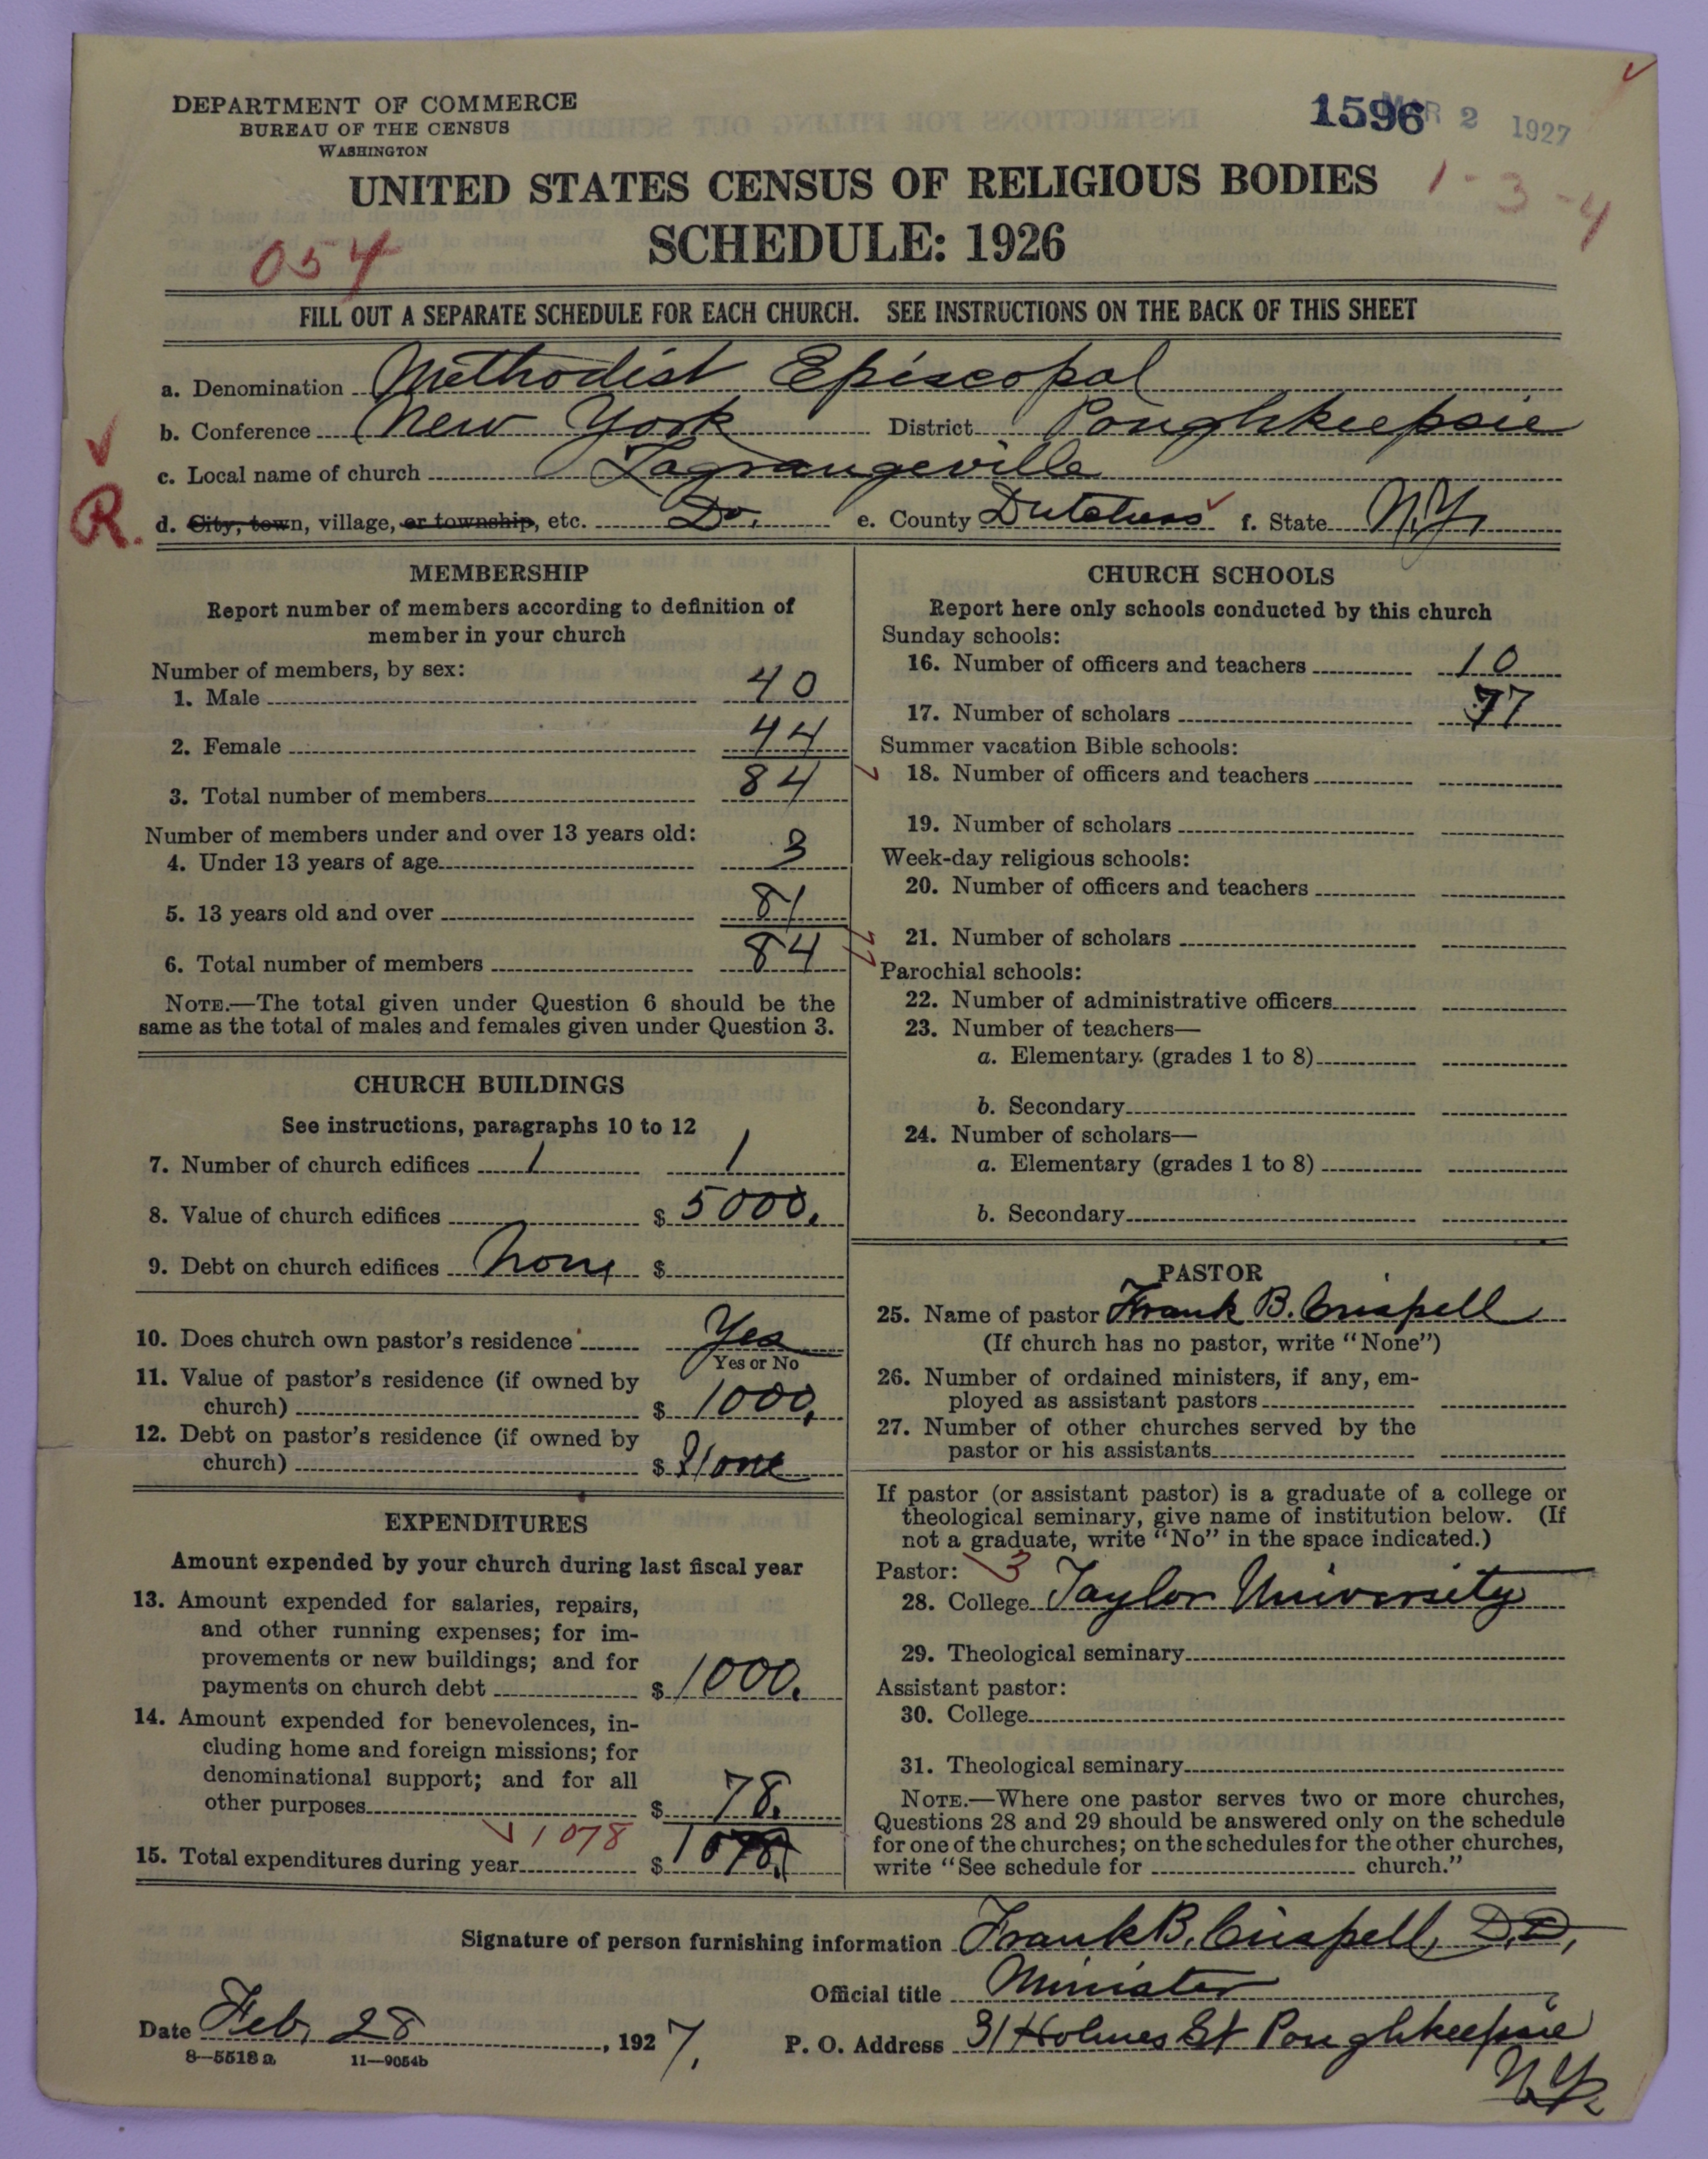 DEPARTMENT OF COMMERCE
BUREAU OF THE CENSUS
WASHINGTON
1596 MAR 2 1927
UNITED STATES CENSUS OF RELIGIOUS BODIES
1-3-4
SCHEDULE: 1926
054
FILL OUT A SEPARATE SCHEDULE FOR EACH CHURCH. SEE INSTRUCTIONS ON THE BACK OF THIS SHEET
a. Denomination Methodist Episcopal
b. Conference New York District Poughkeepsie
c. Local name of church Lagrangeville
R. d. City, town, village, or township, etc. Do. e. County Dutchess f. State N.Y.
MEMBERSHIP
Report number of members according to definition of
member in your church
Number of members, by sex:
1. Male 40
2. Female 44
3. Total number of members 84
Number of members under and over 13 years old:
4. Under 13 years of age 3
5. 13 years old and over 81
6. Total number of members 84
NOTE.—The total given under Question 6 should be the
same as the total of males and females given under Question 3.
CHURCH BUILDINGS
See instructions, paragraphs 10 to 12
7. Number of church edifices 1 1
8. Value of church edifices $ 5000.
9. Debt on church edifices None $
10. Does church own pastor's residence Yes
Yes or No
11. Value of pastor's residence (if owned by
church) $ 1000.
12. Debt on pastor's residence (if owned by
church) $ None
EXPENDITURES
Amount expended by your church during last fiscal year
13. Amount expended for salaries, repairs,
and other running expenses; for im-
provements or new buildings; and for
payments on church debt $ 1000.
14. Amount expended for benevolences, in-
cluding home and foreign missions; for
denominational support; and for all
other purposes $ 78.
1078
15. Total expenditures during year $ 1078.
CHURCH SCHOOLS
Report here only schools conducted by this church
Sunday schools:
16. Number of officers and teachers 10
17. Number of scholars 77
Summer vacation Bible schools:
18. Number of officers and teachers
19. Number of scholars
Week-day religious schools:
20. Number of officers and teachers
21. Number of scholars
Parochial schools:
22. Number of administrative officers
23. Number of teachers—
a. Elementary (grades 1 to 8)
b. Secondary
24. Number of scholars—
a. Elementary (grades 1 to 8)
b. Secondary
PASTOR
25. Name of pastor Frank B. Crispell
(If church has no pastor, write "None")
26. Number of ordained ministers, if any, em-
ployed as assistant pastors
27. Number of other churches served by the
pastor or his assistants
If pastor (or assistant pastor) is a graduate of a college or
theological seminary, give name of institution below. (If
not a graduate, write "No" in the space indicated.)
Pastor: 3
28. College Taylor University
29. Theological seminary
Assistant pastor:
30. College
31. Theological seminary
NOTE.—Where one pastor serves two or more churches,
Questions 28 and 29 should be answered only on the schedule
for one of the churches; on the schedules for the other churches,
write "See schedule for church."
Signature of person furnishing information Frank B. Crispell, D.D.,
Official title Minister
Date Feb. 28, 1927. P. O. Address 31 Holmes St Poughkeepsie
N.Y.
8—5518 a 11—9054b